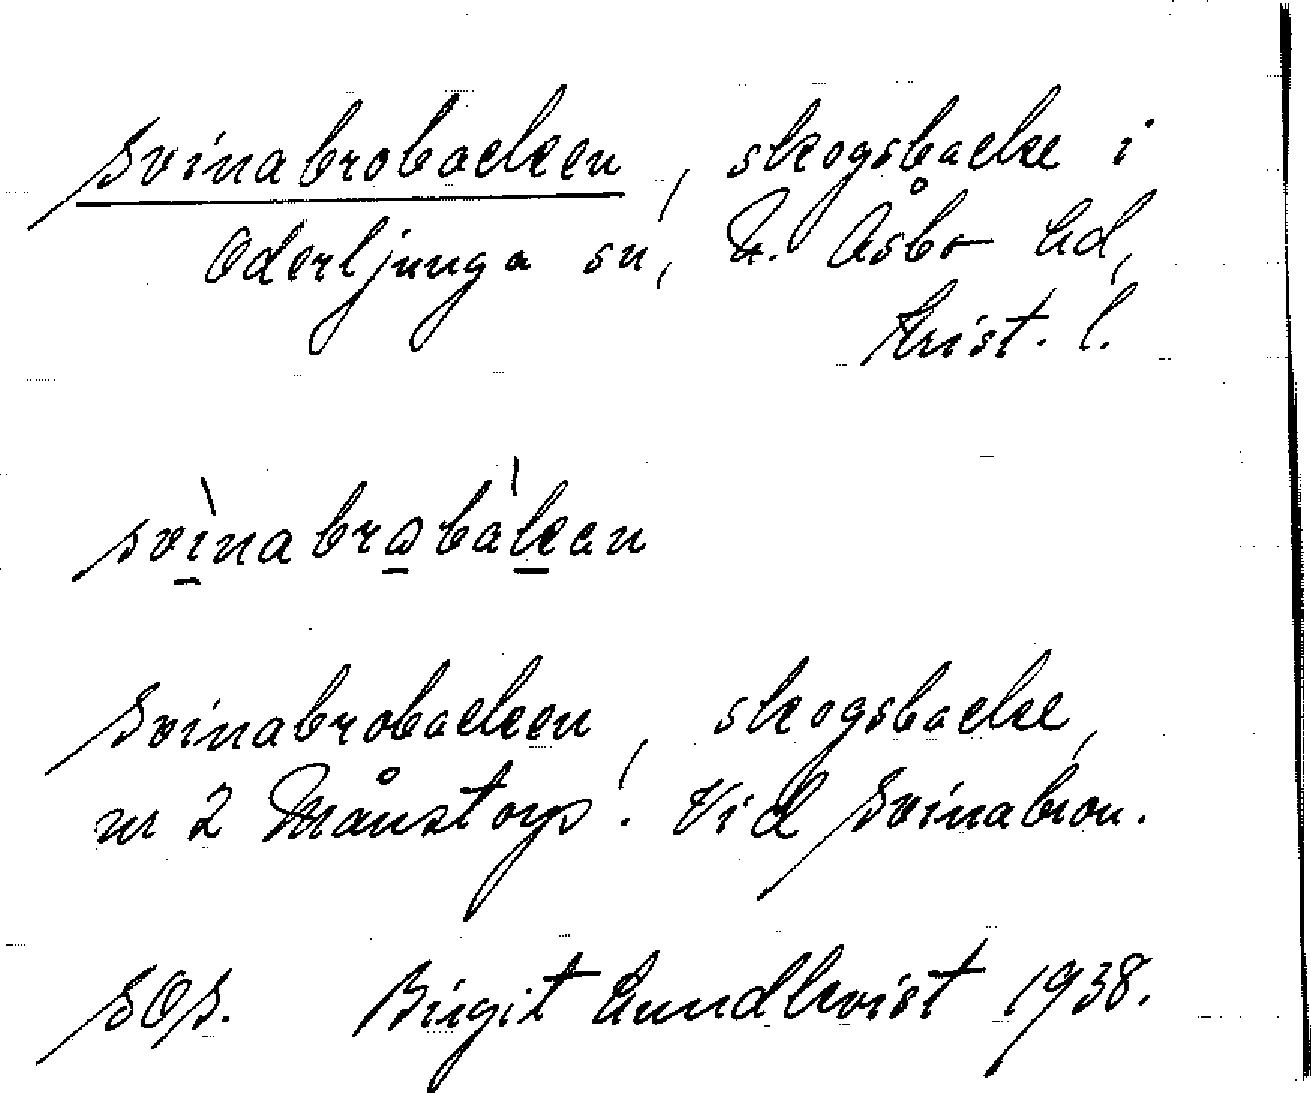 Svinabrobacken, skogsbacke i
Oderljunga sn, N. Åsbo hd,
Krist. l.
svìnabrobàkan
Svinabrobacken, skogsbacke,
nr 2 Månstorp. Vid Svinabron.
SOS. Birgit Lundkvist 1938.